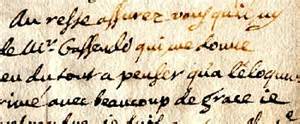 Au reste assurez vous qu'il n'y
de Mr. Gassendo qui me donne
en du tout a penser qu'a l'eloquen
rimé avec beaucoup de grace ie